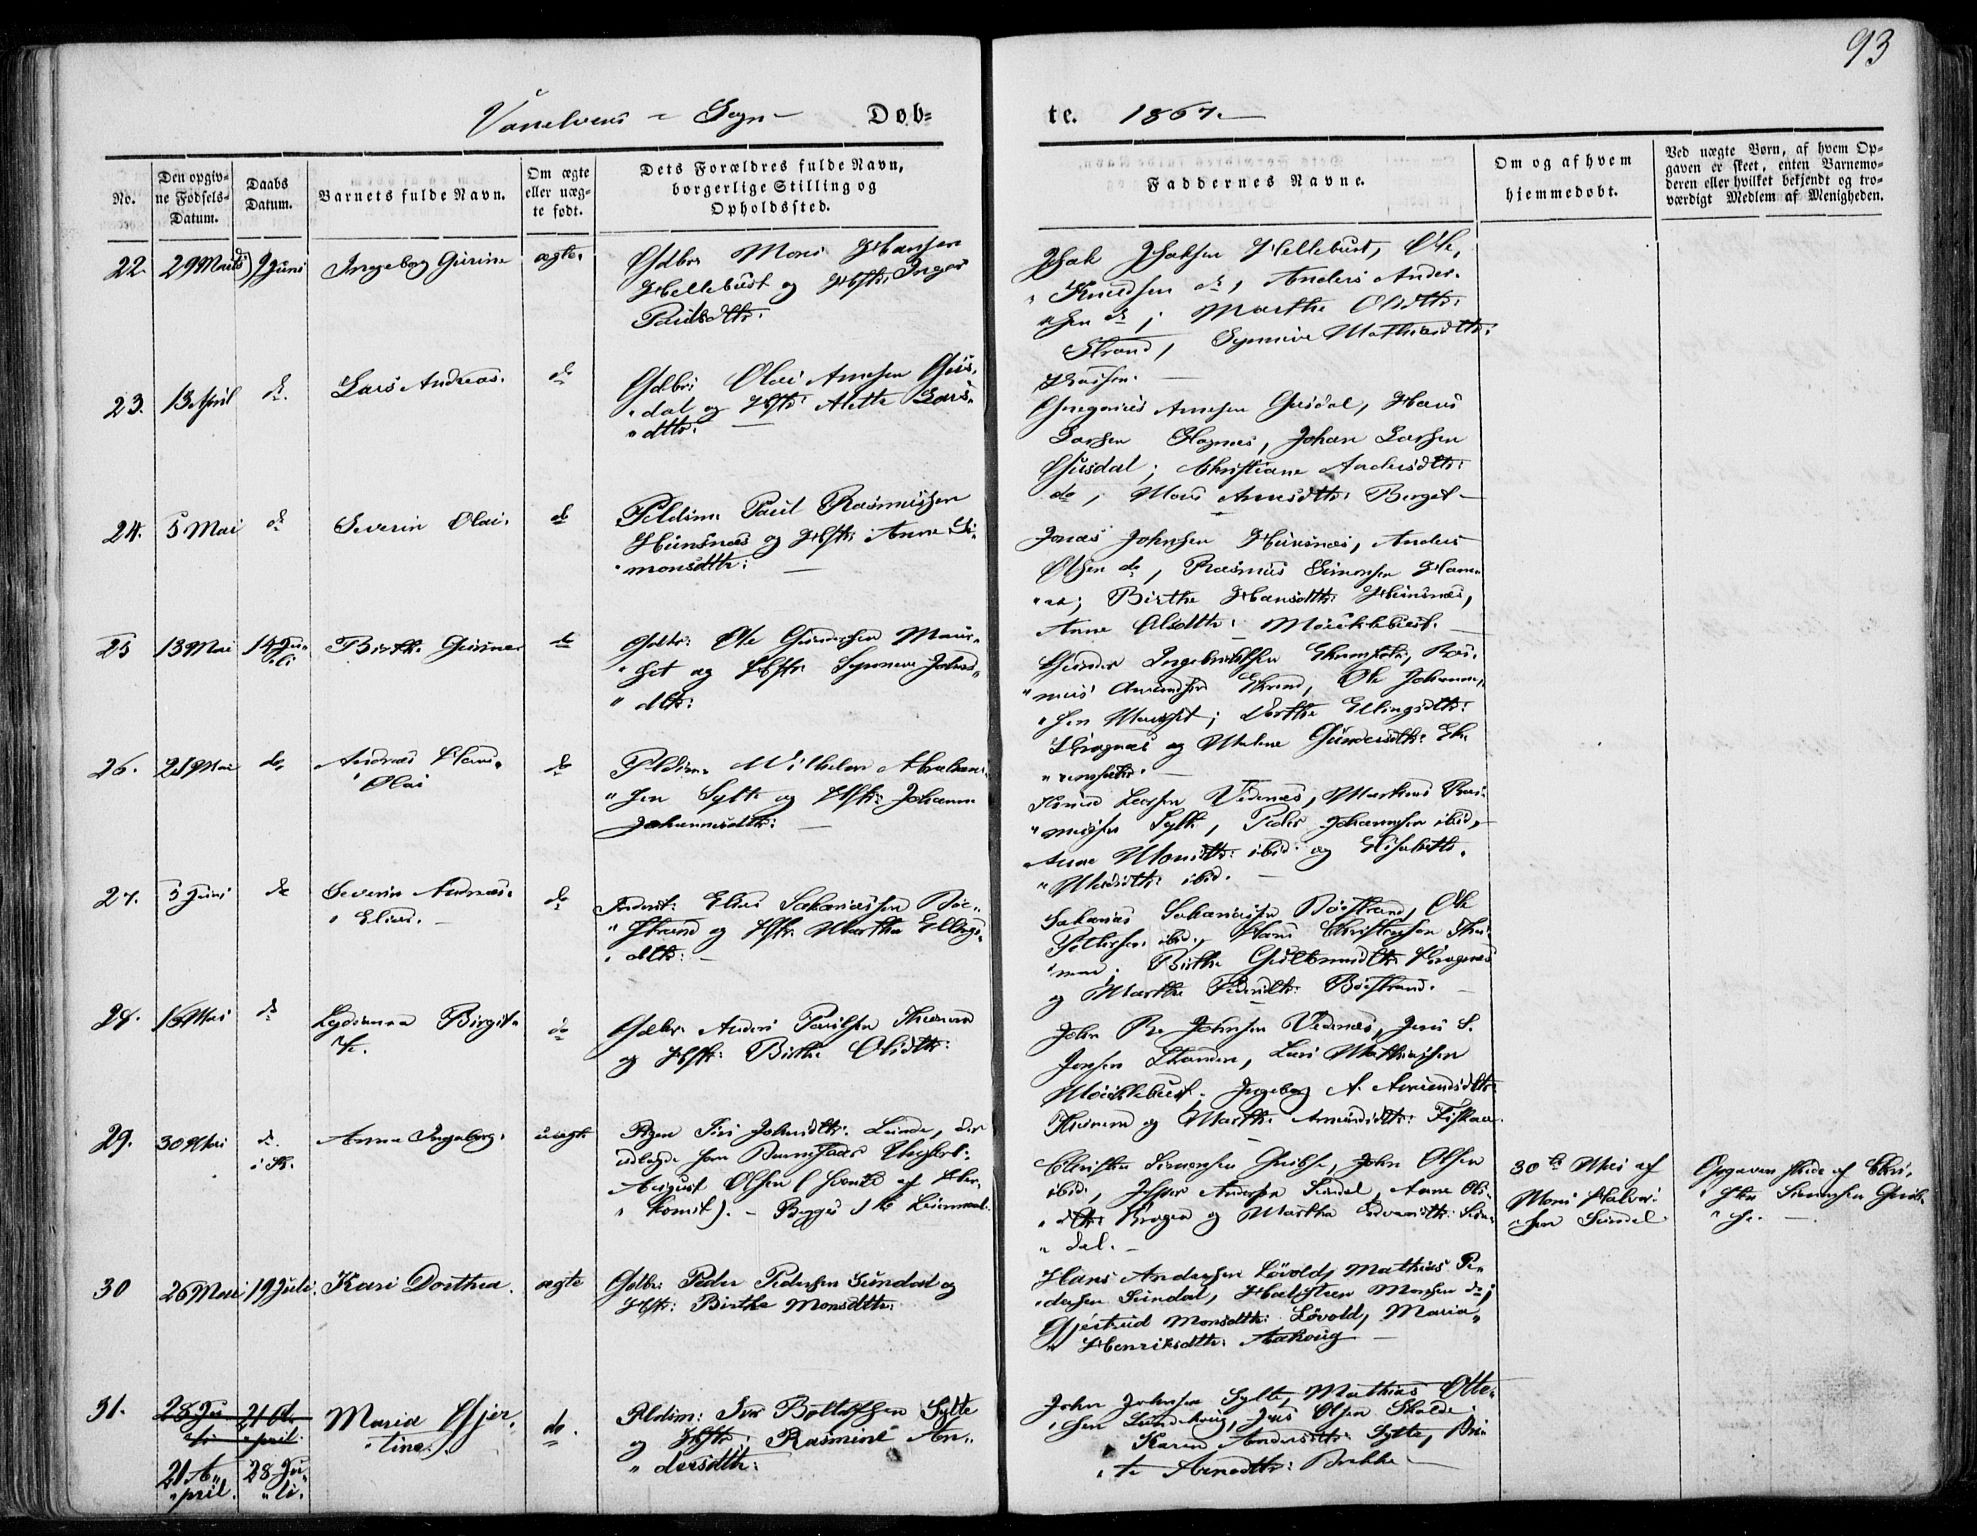 93
Vanelvens Sogn Døb-
te. 1867.
No.
Den opgiv-
ne Fødsels-
Datum.
Daabs
Datum.
Barnets fulde Navn.
Om ægte
eller uæg-
te født.
Dets Forældres fulde Navn,
borgerlige Stilling og
Opholdssted.
Faddernes Navne.
Om og af hvem
hjemmedøbt.
Ved uægte Børn, af hvem Op-
gaven er skeet, enten Barnemo-
deren eller hvilket bekjendt og tro-
værdigt Medlem af Menigheden.
22. 29 Marts 9 Juni Ingeborg Gurine ægte.
Gdbr. Mons Hansen
Hellebust og Hstr. Inger
Paulsdttr.
Isak Isaksen Hellebust, Ole
Knudsen do, Anders Ander-
sen do; Marthe Olsdttr.
Strand, Synnive Mathiasdttr.
23. 13 April do. Lars Andreas. do
Gdbr. Olai Arnesen Gus-
dal og Hstr. Alette Lars-
dttr.
Gregorius Arnesen Gusdal, Hans
Larsen Hagnæs, Johan Larsen
Gusdal; Christiane Andersdttr.
do, Mari Arnesdttr. Berget
24. 5 Mai do Severin Olai. do
Pldsm. Paul Rasmussen
Hunsnæs og Hstr. Anne Si-
monsdttr.
Jonas Johnsen Hunsnæs, Anders
Olsen do, Rasmus Simonsen
Birthe Hansdttr. Hunsnæs,
Anne Olsdttr. Møicklebust.
25 13 Mai 14 Ju-
li Birthe Gurine do
Gdbr. Ole Gundersen Maur-
set og Hstr. Synneve Johns-
dttr.
Gunder Ingebrigtsen Ras-
mus Amundsen Ole Johannes-
sen Maurset; Dorthe Ellingsdttr.
Kragnæs og Malene Gundersdttr.
26. 21 Mai do Andreas Hans
Olai do
Pldsm. Wilhelm Abraham-
sen Sylte og Hstr. Johanne
Johannesdttr.
Knud Larsen Vedenæs, Markus Ras-
mussen Sylte, Peder Johannesen ibid,
Anne Monsdttr. ibid. og Elisabeth
ibid.
27. 5 Juni do Severin Andreas
Elias. do
Inderst: Elias Sakariassen Bøe-
strand og Hstr. Marthe Ellings-
dttr.
Sakarias Sakariassen Bøestrand, Ole
Pettersen ibid, Hans Christensen
Birthe Guldbrandsdttr. Kragnæs
og Marthe Pedersdttr. Bøestrand.
28. 16 Mai do Lydianna Birgit-
te. do
Gdbr. Anders Paulsen Thunem
og Hstr. Birthe Olsdttr.
John Johnsen Vedenæs, Jens S.
Jensen Lars Mathiassen
Møicklebust, Ingeborg A. Amundsdttr.
Thunem og Marthe Amundsdttr. Fiskaa.
29. 30 Mai do.
i K. Anne Ingeborg. uægte
Pigen Siri Johnsdttr. Lunde, der
udlagde som Barnefader Ungkarl
August Olsen (Svensk af Her-
komst). Begges 1ste Leiermaal.
Christen Simonsen Gribse, John Olsen
ibid, Jesper Andersen Sundal, Anne Ols-
dttr. Kragen og Marthe Edvardsdttr. Sun-
dal.
30te Mai af
Mons Halvor-
sen Sundal
Opgaven skede af Chri-
sten Simonsen Grib-
se.
30 26 Mai 19 Juli. Kari Dorthea. ægte
Gdbr. Peder Pedersen Sundal og
Hstr. Birthe Monsdttr.
Hans Andersen Løvold, Mathias Pe-
dersen Sundal, Halsten Monsen do;
Gjertrud Monsdttr. Løvold, Maria
Henriksdttr. Aakvig
31. 28 Ju-
li 21 A-
pril
21 A-
pril. 28 Ju-
li. Maria Gjer-
tine. do.
Pldsm: Iver Boltassen Sylte
og Hstr. Rasmine An-
dersdttr.
John Johnsen Sylte, Mathias Otte-
sen Jens Olsen
Karen Andersdttr. Sylte, Bri-
te Arnedttr. Bakke